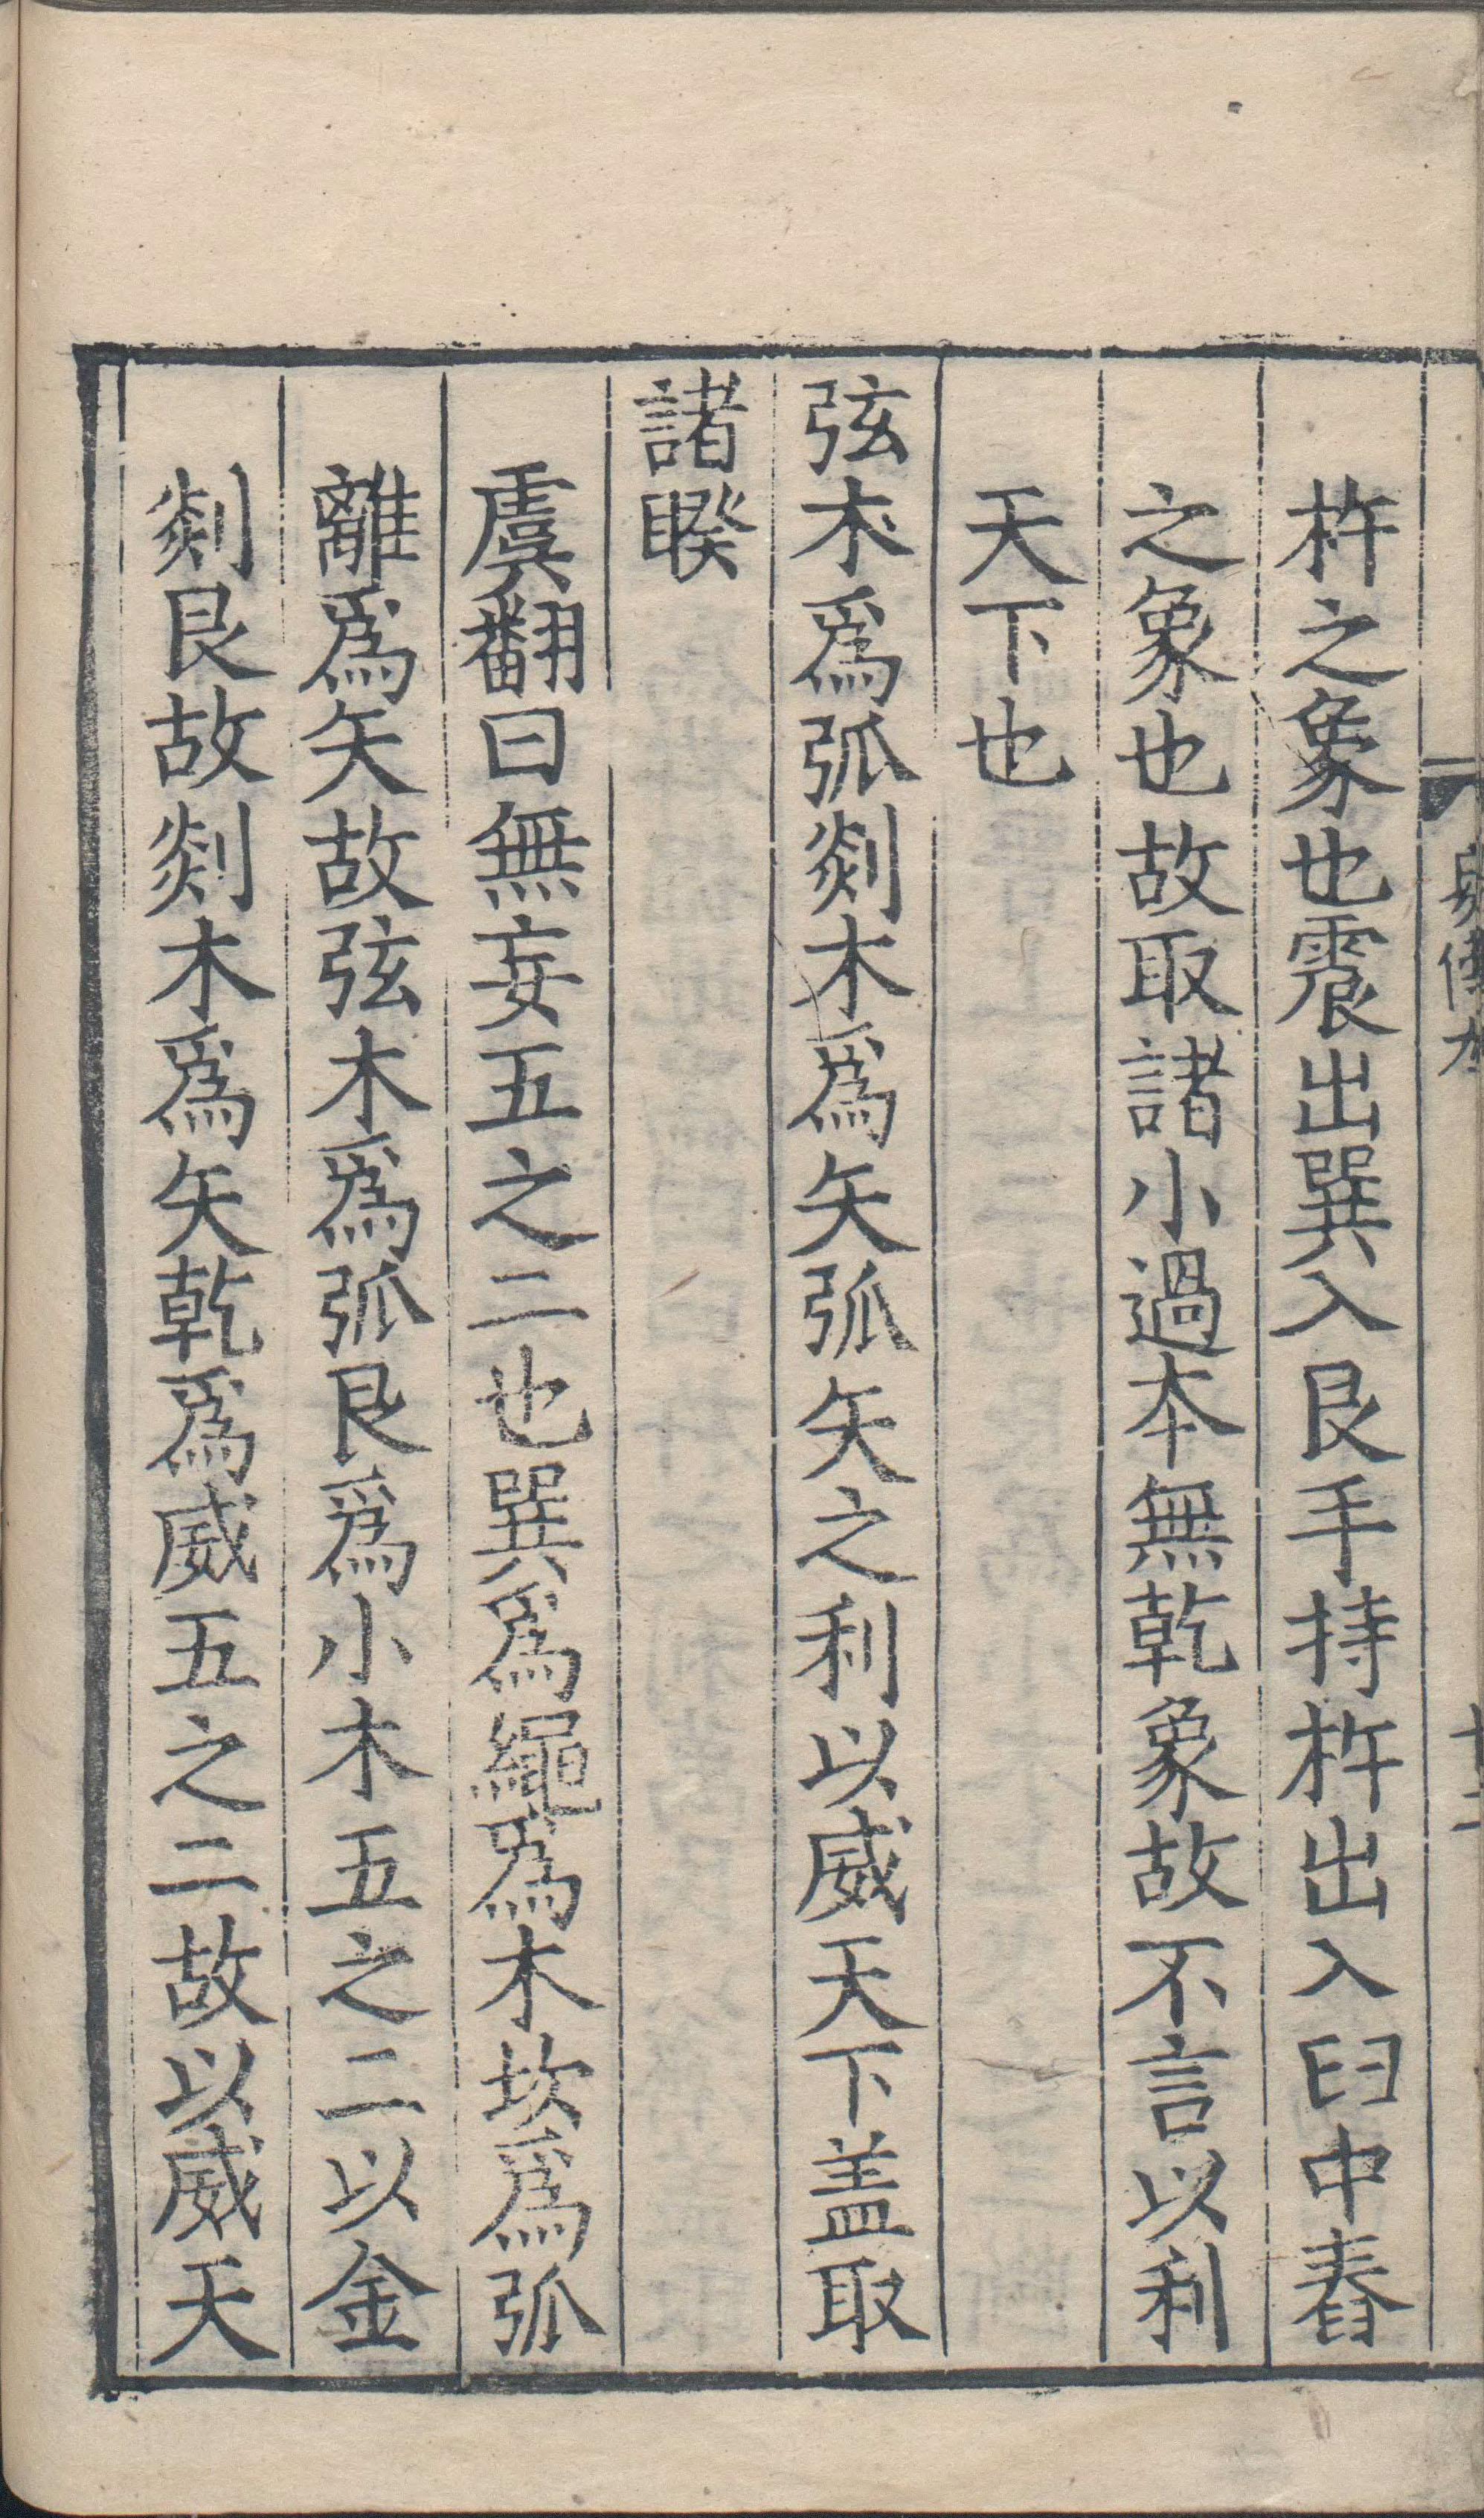 杵之象也震出巽入艮手持杵出入臼中舂
之象也故取諸小過本無乾象故不言以利
天下也
弦木爲弧剡木爲矢弧矢之利以威天下盖取
諸睽
虞翻曰無妄五之二也巽爲繩爲木坎爲弧
離爲矢故弦木爲弧艮爲小木五之二以金
剡艮故剡木爲矢乾爲威五之二故以威天